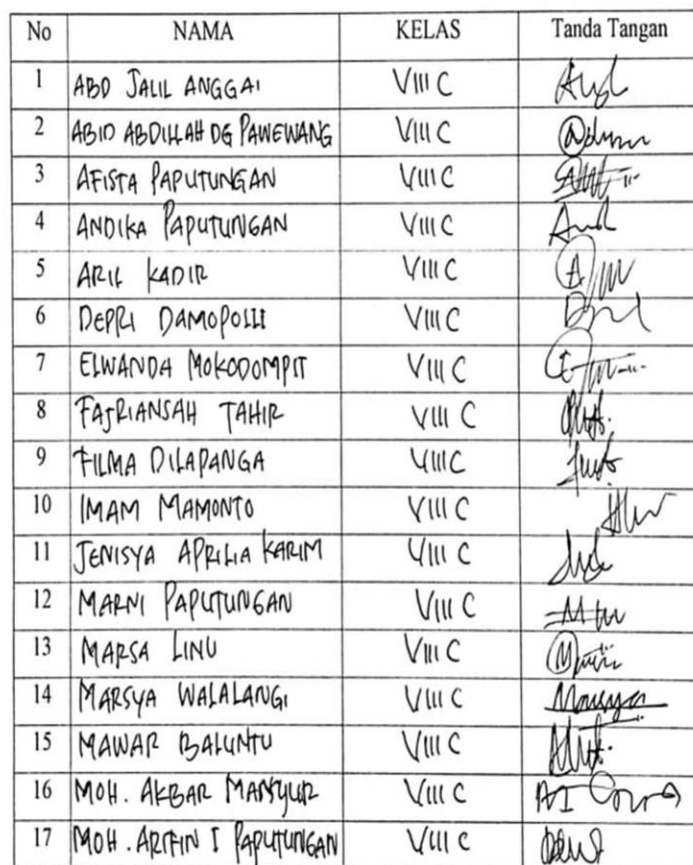 No NAMA KELAS Tanda Tangan
1 ABD JALIL ANGGAI VIII C
2 ABID ABDILLAH DG PAWEWANG VIII C
3 AFISTA PAPUTUNGAN VIII C
4 ANDIKA PAPUTUNGAN VIII C
5 ARIL KADIR VIII C
6 DEPRI DAMOPOLII VIII C
7 ELWANDA MOKODOMPIT VIII C
8 FAJRIANSAH TAHIR VIII C
9 FILMA DILAPANGA VIII C
10 IMAM MAMONTO VIII C
11 JENISYA APRILIA KARIM VIII C
12 MARNI PAPUTUNGAN VIII C
13 MARSA LINU VIII C
14 MARSYA WALALANGI VIII C Marsya
15 MAWAR BALUNTU VIII C
16 MOH. AKBAR MANSYUR VIII C
17 MOH. ARIFIN I PAPUTUNGAN VIII C